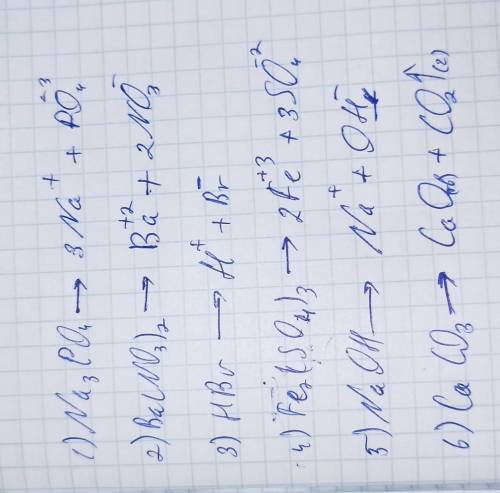 1) Na₃PO₄ → 3Na⁺ + PO₄⁻³
2) Ba(NO₃)₂ → Ba⁺² + 2NO₃⁻
3) HBr → H⁺ + Br⁻
4) Fe₂(SO₄)₃ → 2Fe⁺³ + 3SO₄⁻²
5) NaOH → Na⁺ + OH⁻
6) CaCO₃ → CaO + CO₂↑(г)